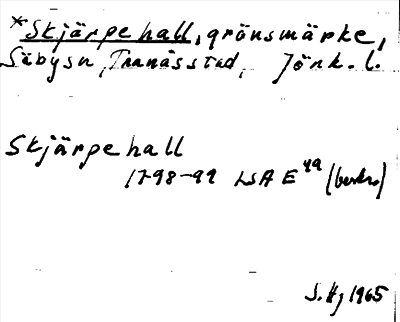 *Skjärpehall, gränsmärke,
Säbysn, Tranåsstad, Jönk. l.
Skjärpehall
1798-99 LSA E 49 (beskr.)
S. Hj 1965